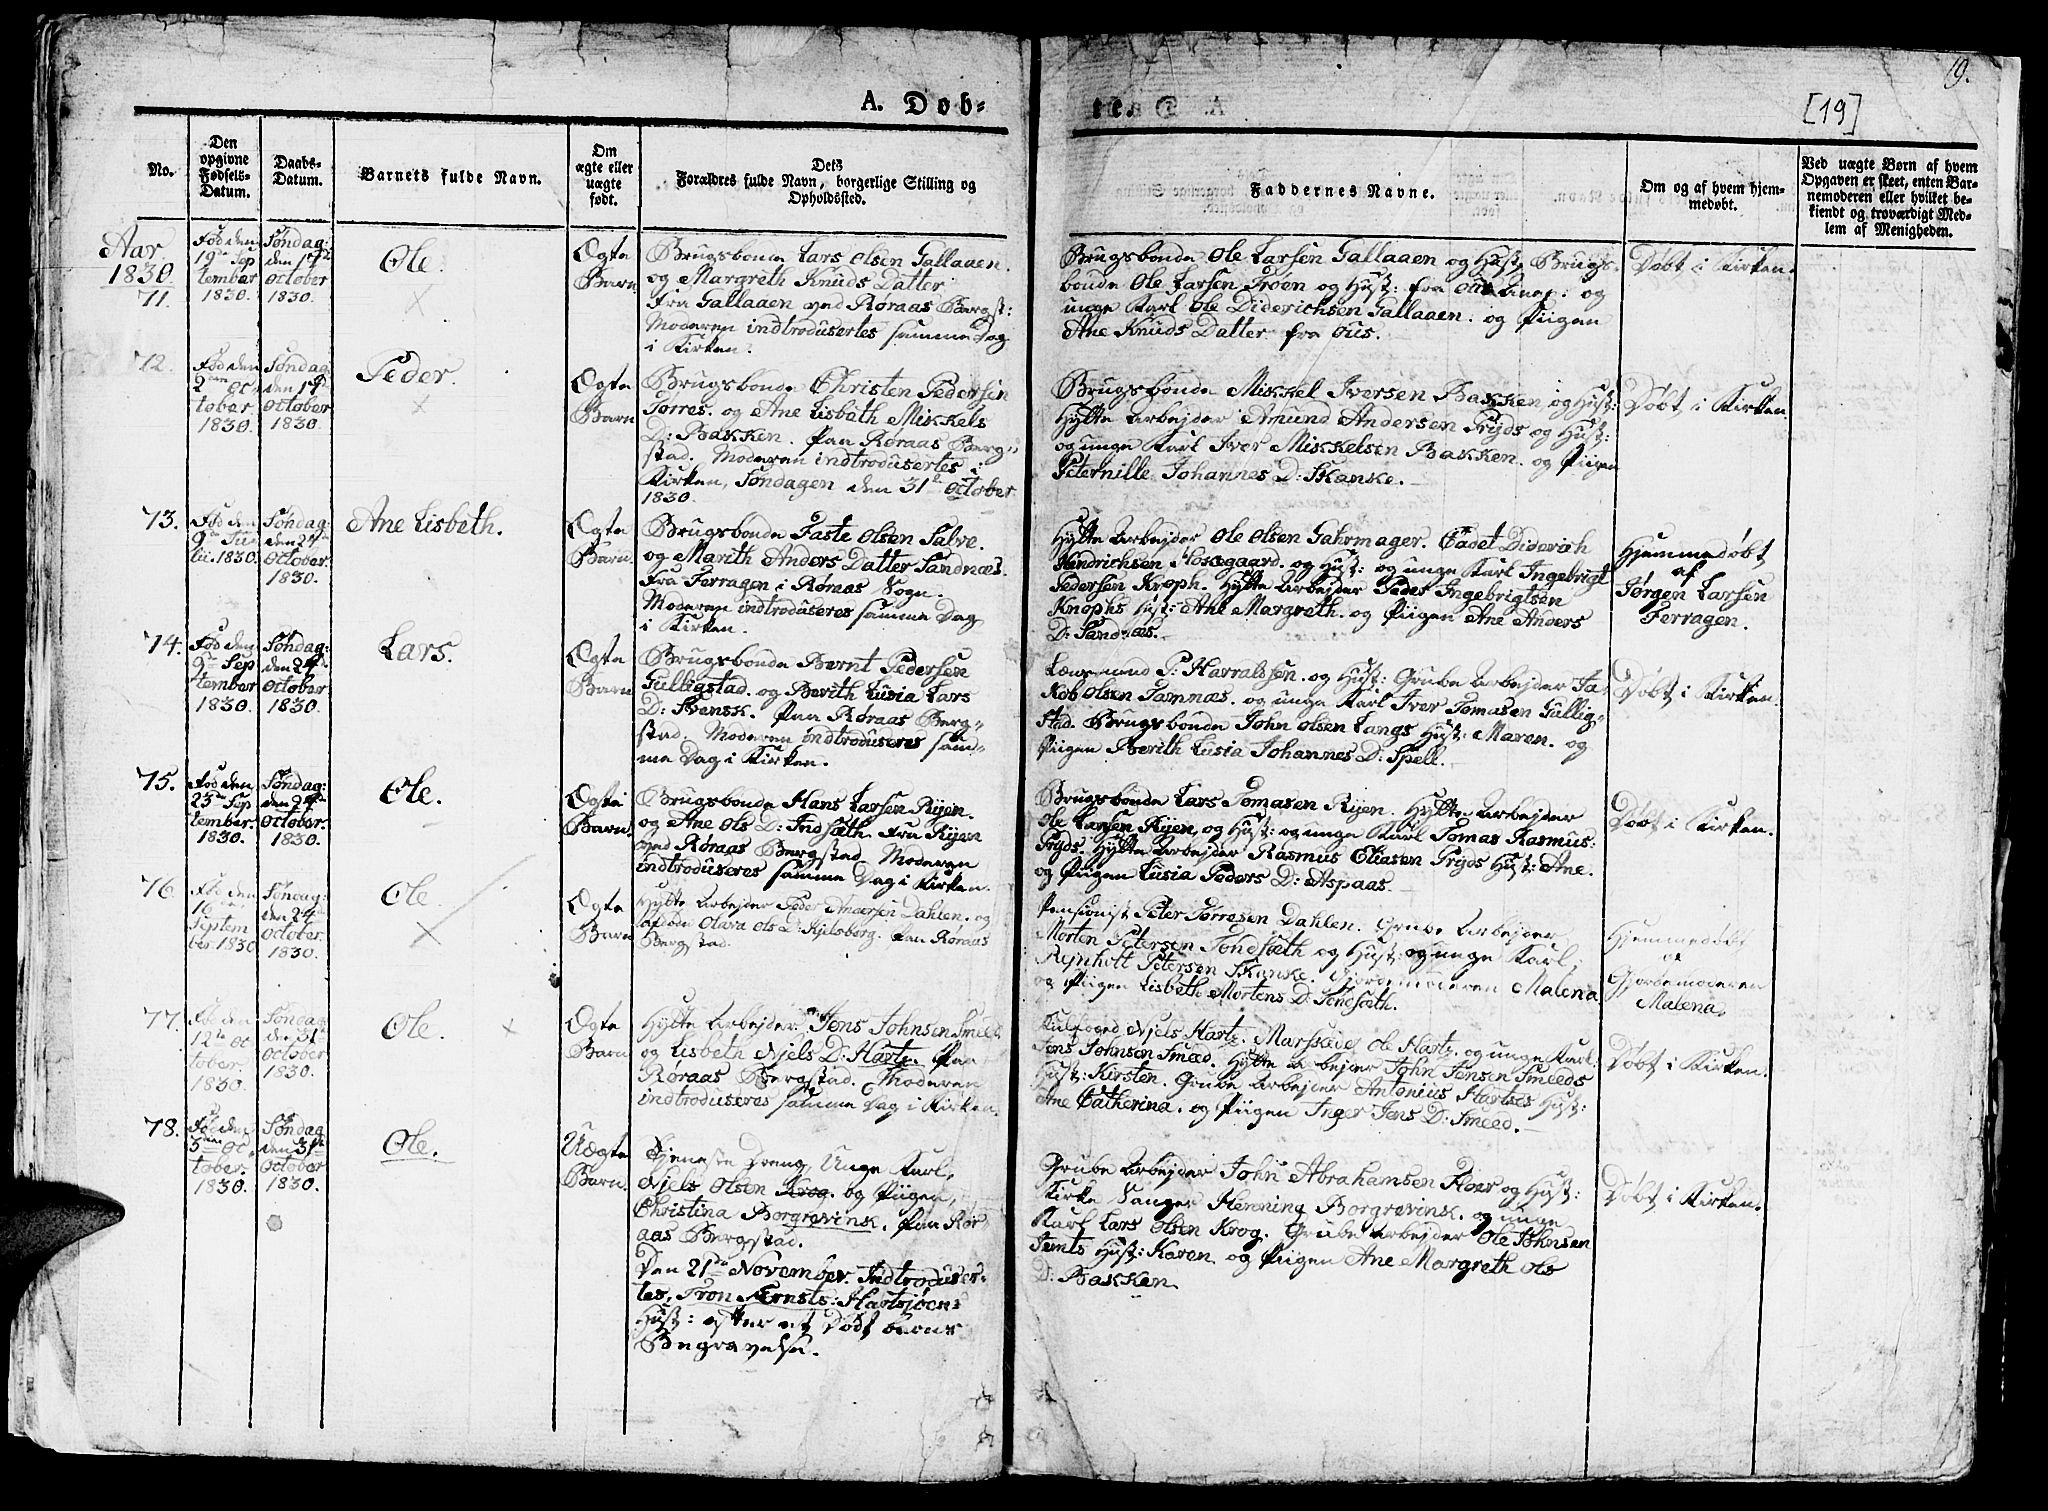 19.
[19]
A. Døb-
te.
No.
Den opgivne Fødsels-Datum.
Daabs-Datum.
Barnets fulde Navn.
Om ægte eller uægte født.
Dets Forældres fulde Navn, borgerlige Stilling og Opholdssted.
Faddernes Navne.
Om og af hvem hjem-medøbt.
Ved uægte Børn af hvem
Opgaven er skeet, enten Bar-
nemoderen eller hvilket be-
kiendt og troværdigt Med-
lem af Menigheden.
Aar
1830.
71.
Fød den
19de Sep
tember
1830.
Søndag:
den 17de
October
1830.
Ole.
Ægte
Barn
Brugsbonde Lars Olsen Gallaaen.
og Margreth Knuds Datter
fra Gallaaen ved Røraas Bergst:
Moderen indtrodusertes samme Dag
i Kirken.
Brugsbonde Ole Larsen Gallaaen og Hust, Brugs-
bonde Ole Larsen Trøen og Hust: fra og
unge Karl Ole Diderichsen Gallaaen. og Piigen
Ane Knuds Datter fra Ous.
Døbt i Kirken.
72.
Fød den
2den Oc
tober
1830.
Søndag
den 17de
October
1830.
Peder.
Ægte
Barn
Brugsbonde Christen Pedersen
Torres. og Ane Lisbeth Mikkels
D: Bakken. Paa Røraas Berg-
stad. Moderen indtrodusertes i
Kirken, Søndagen den 31te October
1830.
Brugsbonde Mikkel Iversen Bakken, og Hust:
Hytte Arbejder Amund Andersen Pryds og Hust:
og unge Karl Iver Mikkelsen Bakken. og Piigen
Peternille Johannes D: Skanke.
Døbt i Kirken.
73.
Fød den
9de Jul
lii. 1830.
Søndag:
den 24de
October.
1830.
Ane Lisbeth.
Ægte
Barn.
Brugsbonde Faste Olsen Salve.
og Marith Anders Datter Sandnæs.
fra Ferragen i Røraas Sogn.
Moderen indtroduseres samme Dag
i Kirken.
Hytte Arbejder Ole Olsen Gahrmager. Cadet Diderich
Hendrichsen Aasgaard. og Hust: og unge Karl Ingebrigt
Pedersen Knoph. Hytte Arbejder Peder Ingebrigtsen
Knophs Hust: Ane Margreth. og Piigen Ane Anders
D: Sandnæs.
Hjemmedøbt
af
Jørgen Larsen
Ferragen.
74.
Fød den
9de Sep
tember
1830.
Søndag:
den 24de
October
1830.
Lars.
Ægte
Barn
Brugsbonde Bernt Pedersen
Gulligstad. og Berith Lusia Lars
D: Svensk. Paa Røraas Berg-
stad. Moderen indtroduseres sam-
me Dag i Kirken.
Lænsmend P: Harralssen. og Hust: Grube Arbejder Ja-
kob Olsen Tamnæs. og unge Karl Iver Tomasen Gullig-
stad. Brugsbonde John Olsen Langs Hust: Maren. og
Piigen Berith Lusia Johannes D: Spell.
Døbt i Kirken.
75.
Fød den
23de Sep
tember.
1830.
Søndag:
den 24de
October.
1830.
Ole.
Ægte
Barn.
Brugsbonde Hans Larsen Ryen.
og Ane Ols D: Indsæth. fra Ryen
ved Røraas Bergstad. Moderen
indtroduseres samme Dag i Kirken.
Brugsbonde Lars Tomasen Ryen. Hytte Arbejder
Ole Larsen Ryen, og Hust: og unge Karl Tomas Rasmus:
Pryds. Hytte Arbejder Rasmus Eliasen Pryds Hust: Ane.
og Piigen Lusia Peders D: Aspaas.
Døbt i Kirken.
76.
Fød den
16
Septem
ber. 1830
Søndag:
den 24de
October.
1830.
Ole.
Ægte
Barn.
Hytte Arbejder Peder Andersen Dahlen. og
Olava Ols D: Kjelsberg. Paa Røraas
Bergstad.
Pensionist Peter Torresen Dahlen. Grube Arbejder
Morten Petersen Tondsæth og Hust: og unge Karl,
Rejnholt Petersen Skanke. Gjordemoderen Malena
og Piigen Lisbeth Mortens D: Tondsæth.
Hjemmedøbt
af
Gjordemoderen
Malena.
77.
Fød den
12te Oc
tober.
1830.
Søndag
den 31te
October.
1830.
Ole.
Ægte
Barn
Hytte Arbejder Jens Johnsen Smeed.
og Lisbeth Njels D: Hartz. Paa
Røraas Bergstad. Moderen
indtroduseres samme Dag i Kirken.
Kulfoged Njels Hartz. Ole Hartz. og unge Karl:
Jens Johnsen Smeed. Hytte Arbejder John Jensen Smeeds
Hust: Kirsten. Grube Arbejder Antonius Hartzes Hust:
Ane Catherina. og Piigen Inger Jens D: Smeed.
Døbt i Kirken.
78.
Fød den
5den Oc
tober.
1830.
Søndag
den 31te
October
1830.
Ole.
Uægte
Barn.
Tjeneste Dreng, Unge Karl,
Njels Olsen Krog. og Piigen,
Christina Borgrevink. Paa Rør
aas Bergstad.
Den 21de November. Indtroduser-
tes, Tron Ernsts: Hartsjøens
Hust: efter et Dødt barns
Begravelse.
Grube Arbejder John Abrahamsen Floer og Hust:
Kirke Sanger Henning Borgrevink. og unge
Karl Lars Olsen Krog. Grube Arbejder Ole Johnsen
Jemts Hust: Karen. og Piigen Ane Margreth Ols
D: Bakken.
Døbt i Kirken.